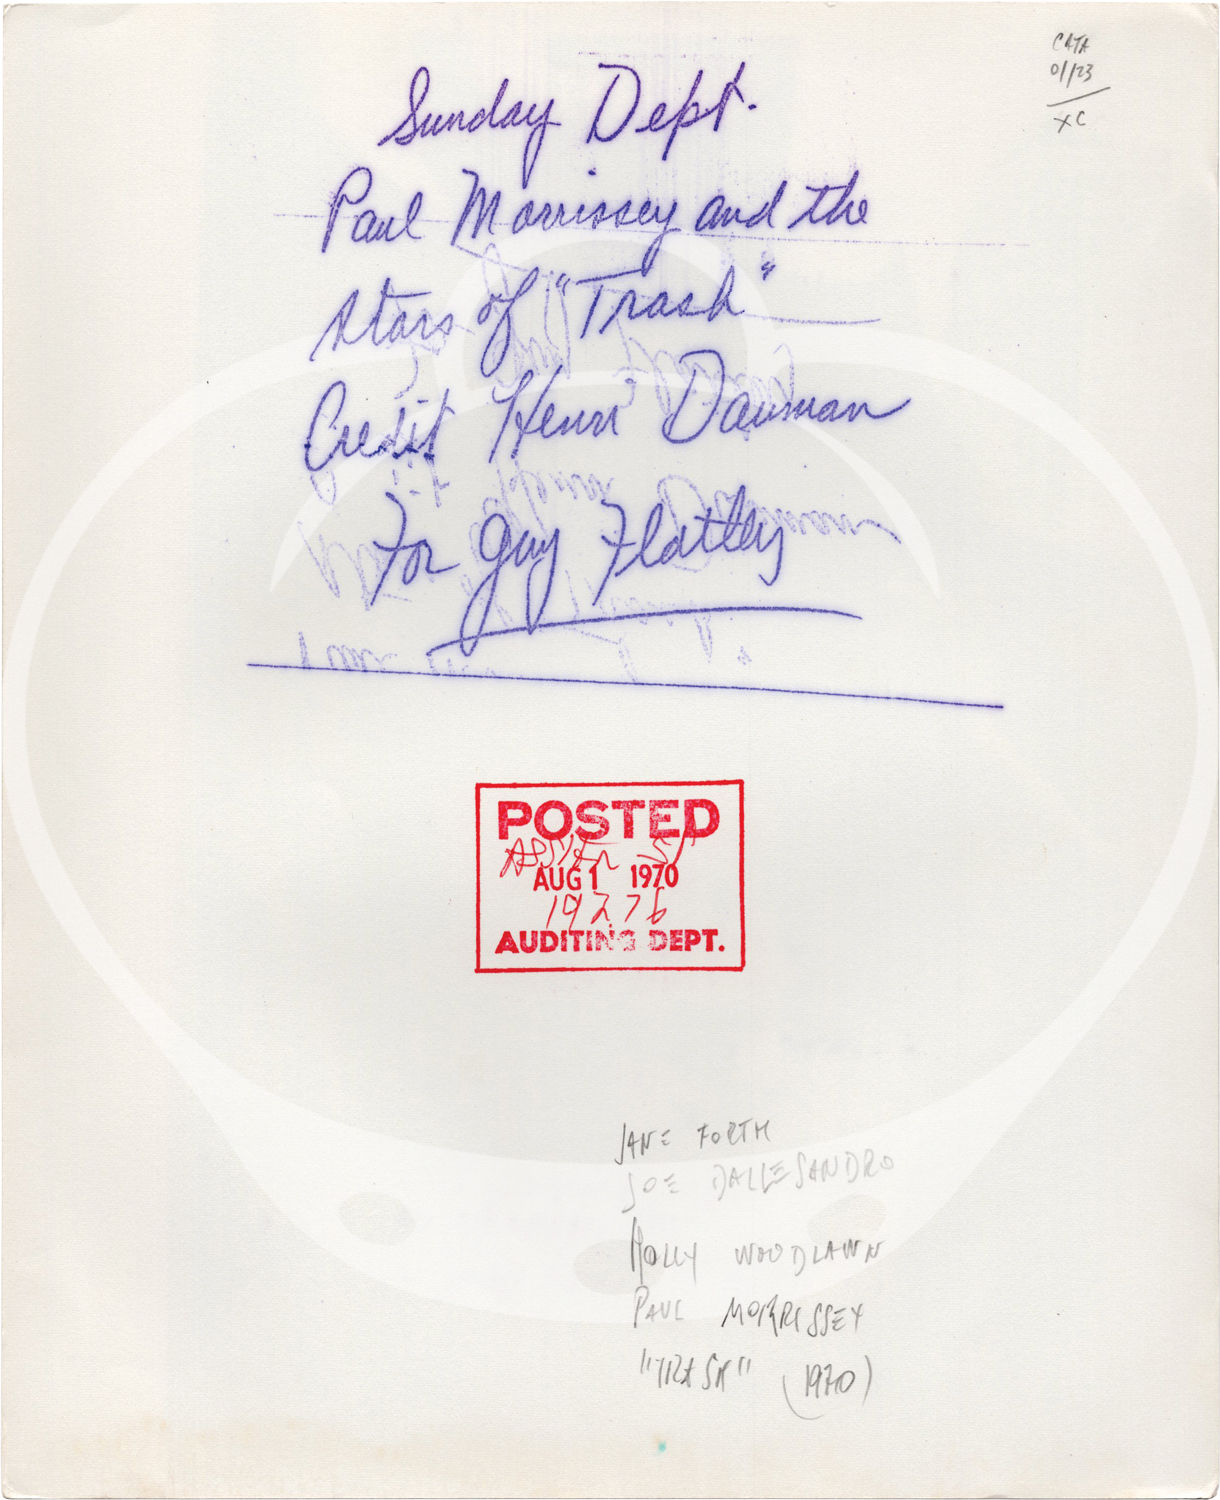 CATA
01/23
XC
Sunday Dept.
Paul Morrissey and the
stars of "Trash"
Credit Henri Dauman
For Guy Flatley
POSTED
AUG 1 1970
19276
AUDITING DEPT.
JANE FORTH
JOE DALLESANDRO
HOLLY WOODLAWN
PAUL MORRISSEY
"TRASH" (1970)